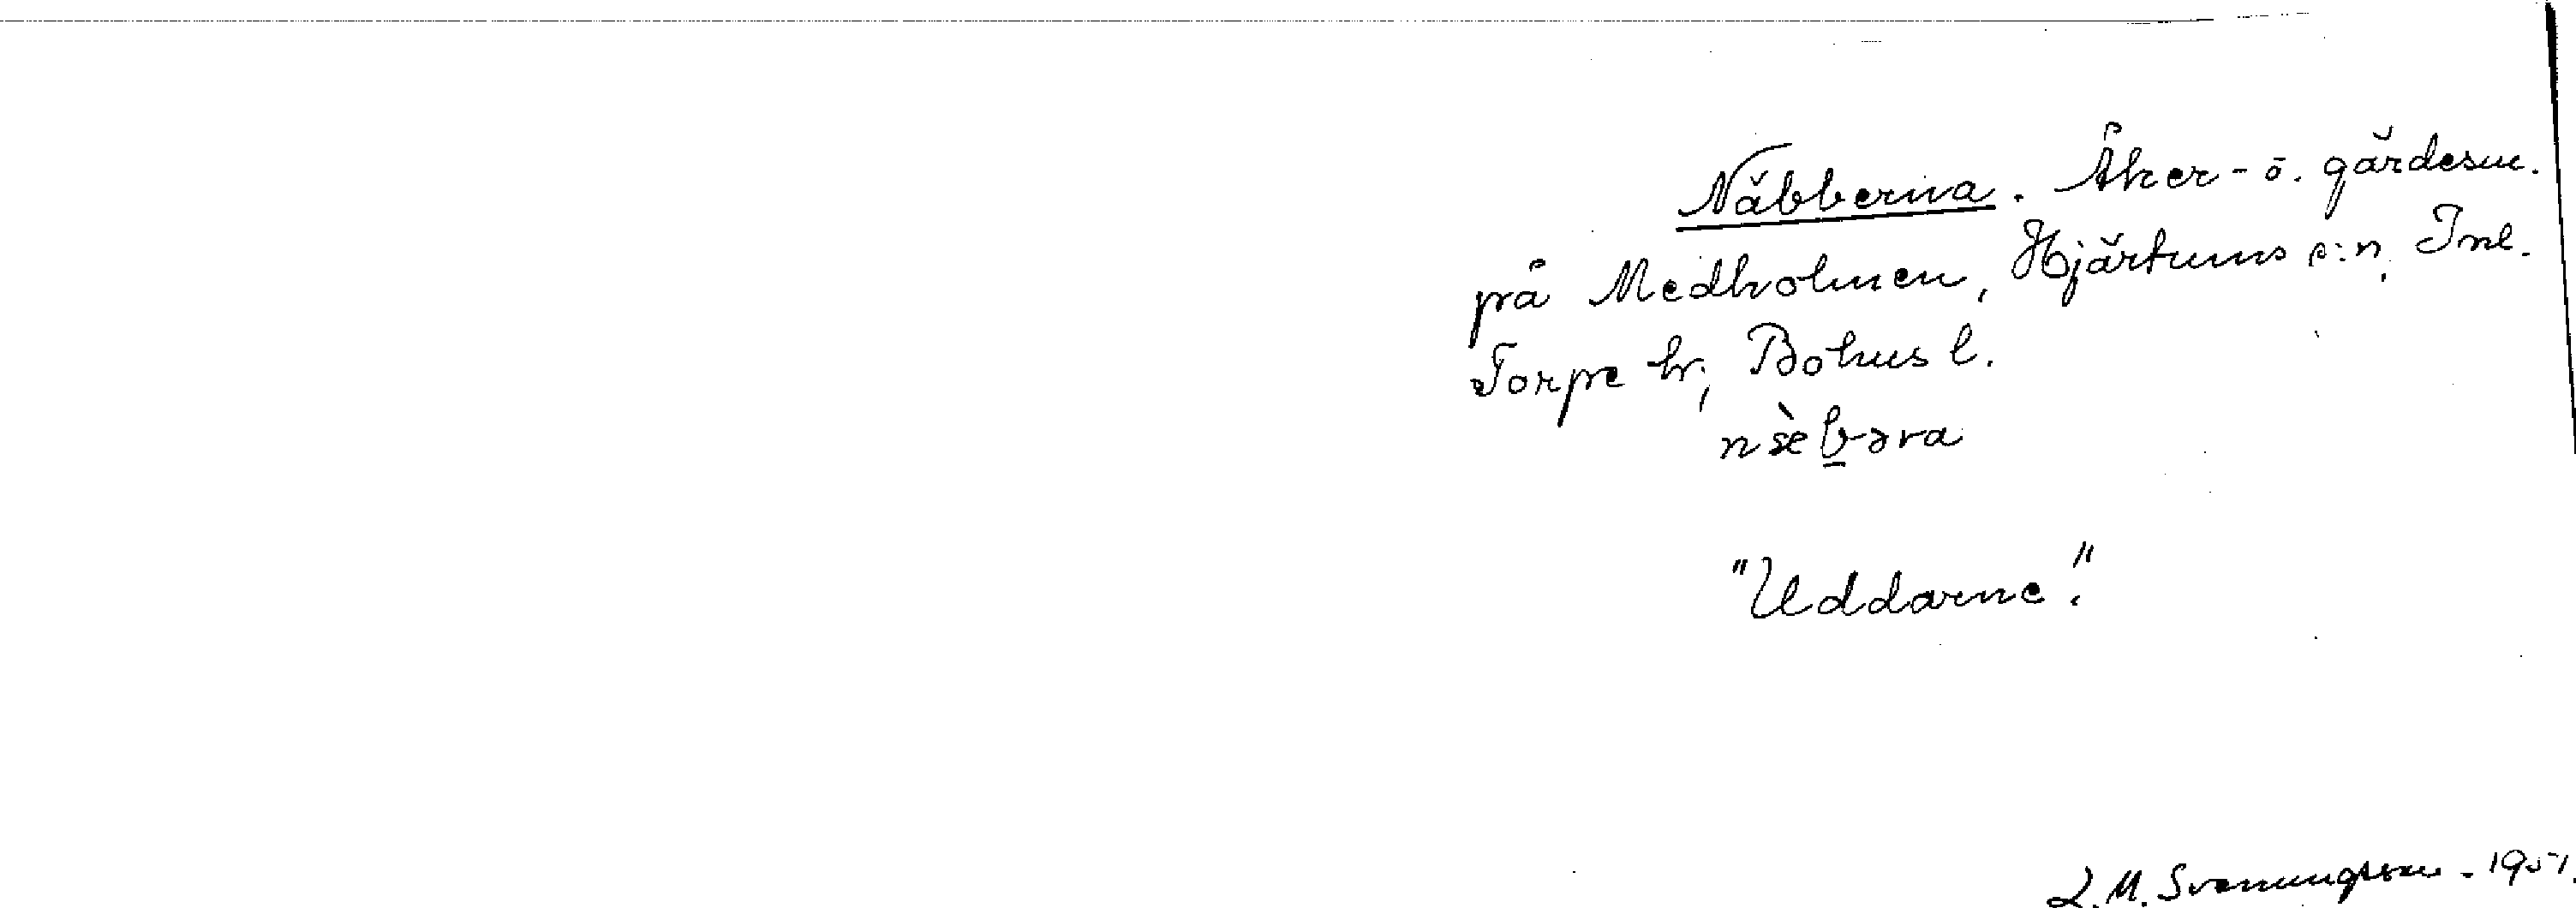 Näbberna. Åker- o. gärdesm.
på Medholmen, Hjärtums s:n, Inl.
Torpe hr, Bohusl.
næ̀b̠əra
"Uddarne".
L. M. Svenungsson - 1951.